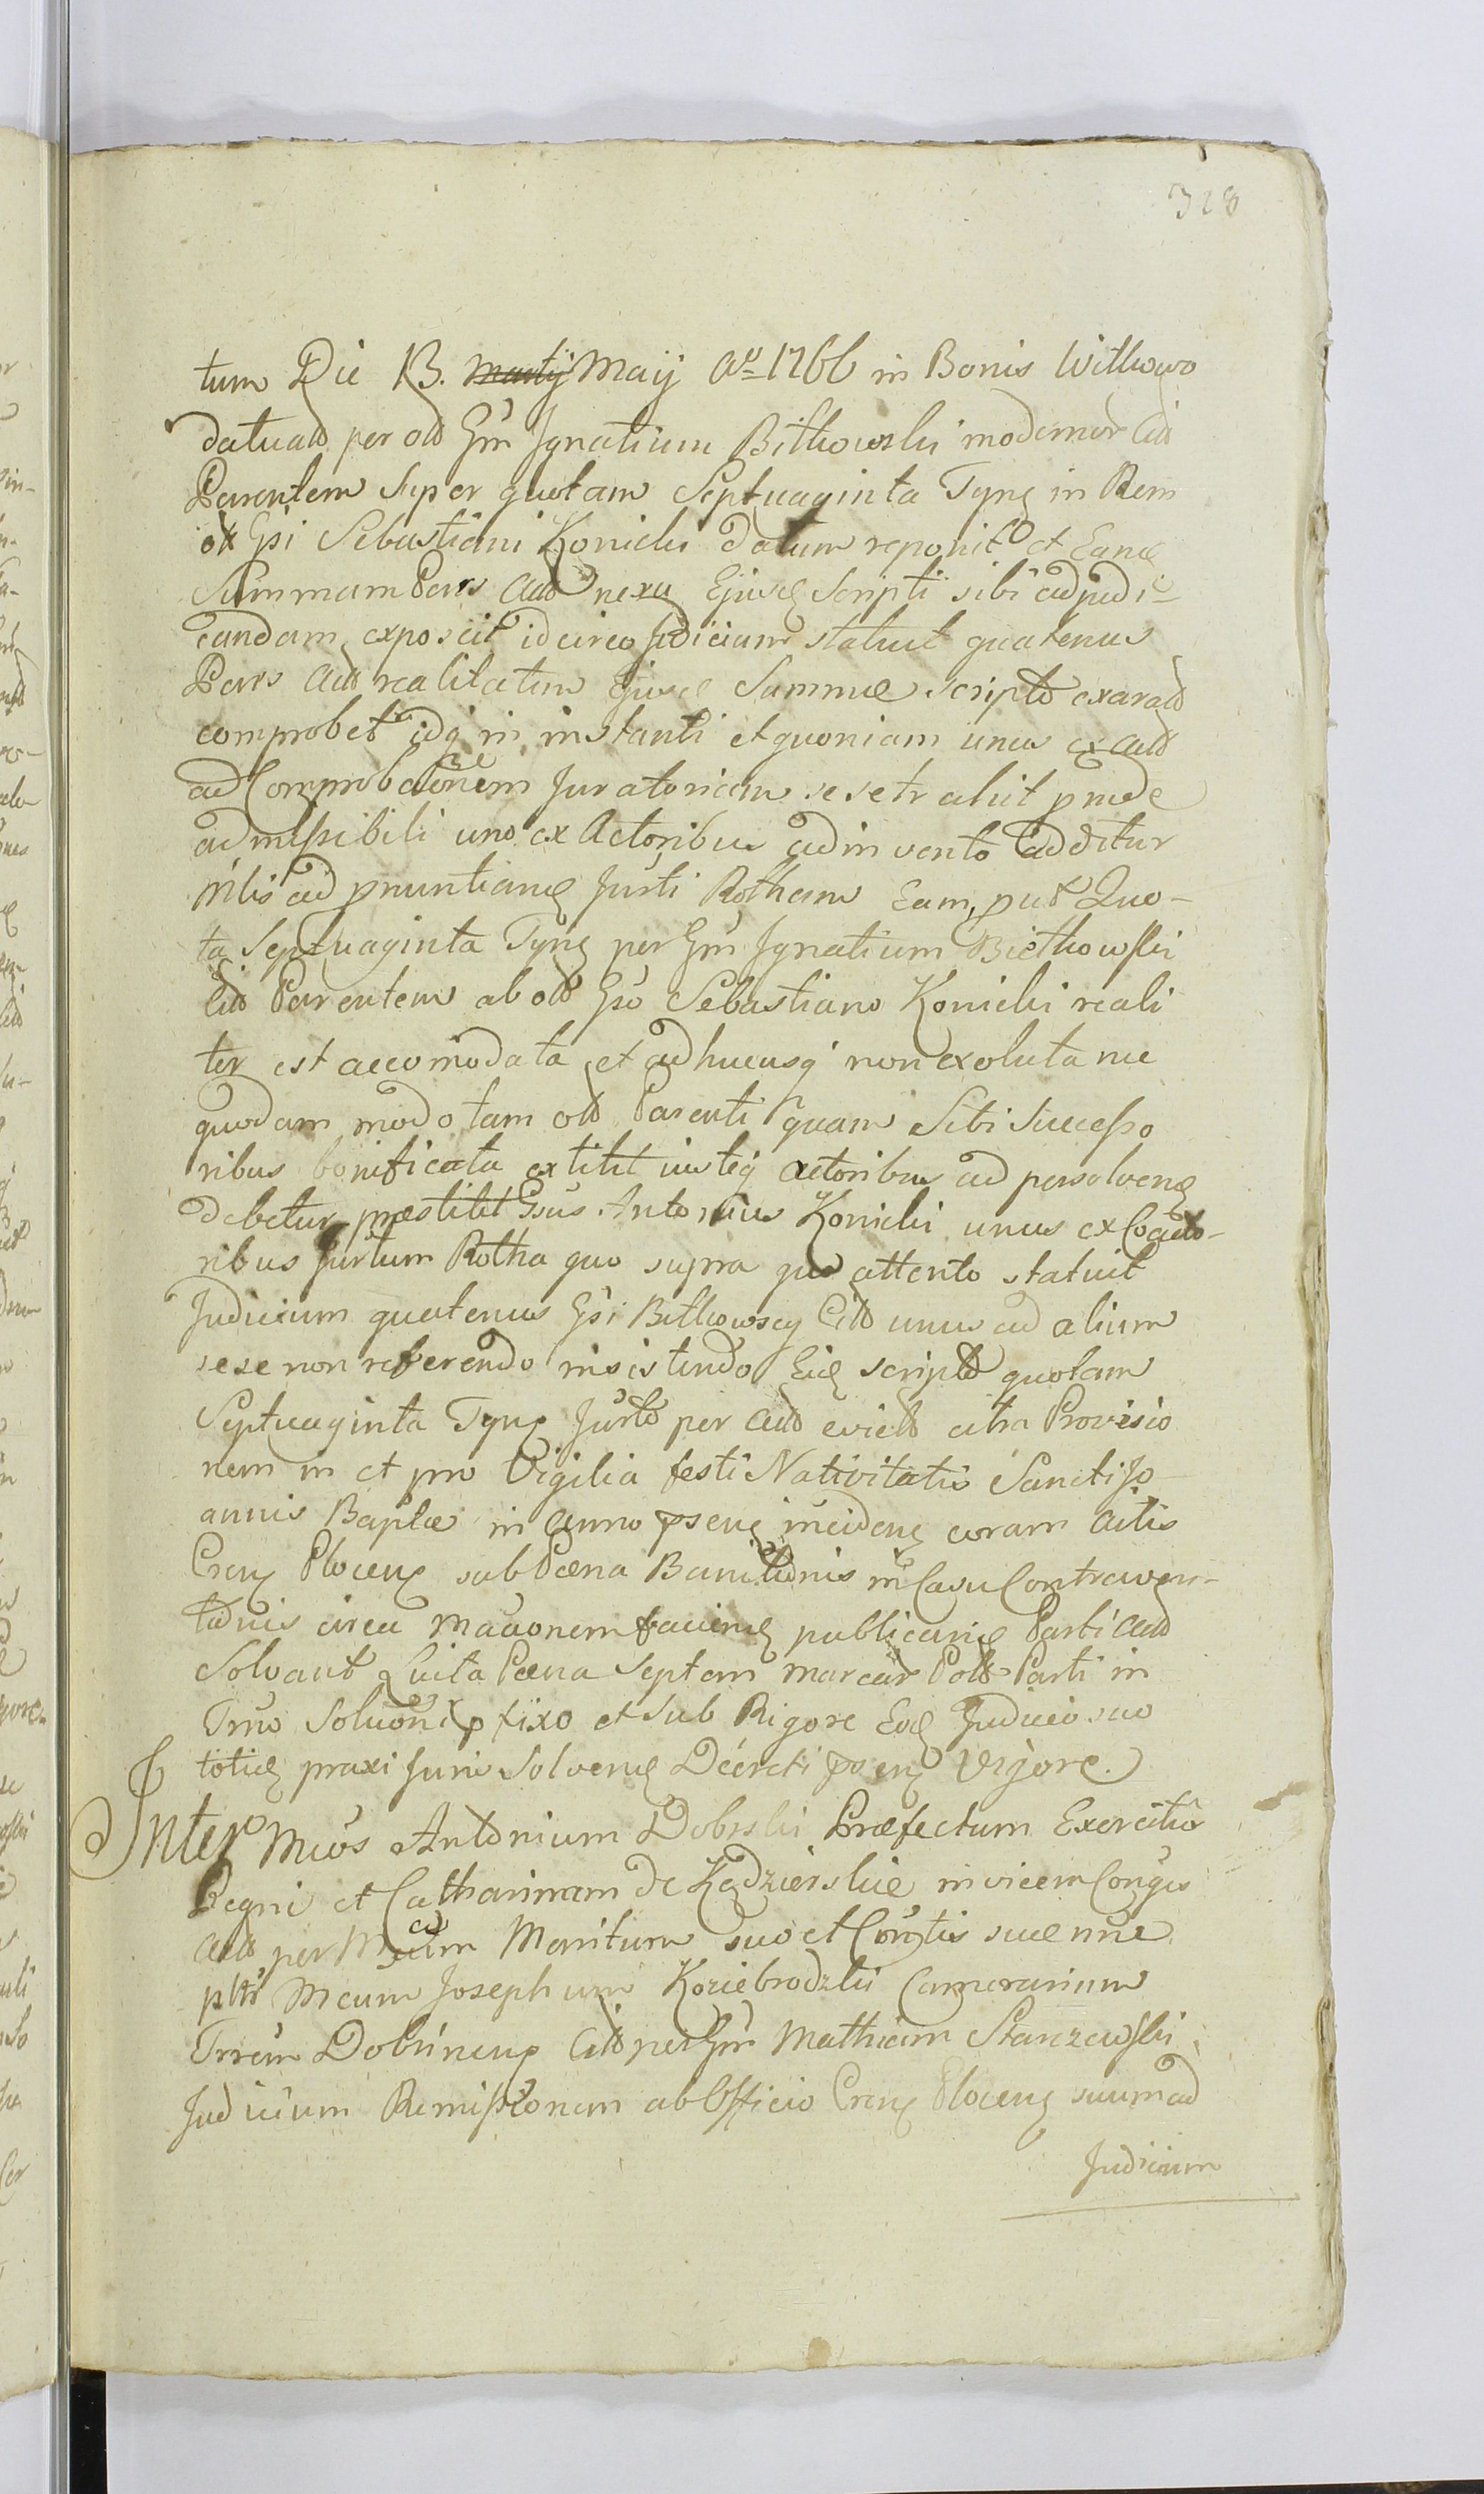 328
tum Die 13. Martij Maij Ao 1766 in Bonis Witkowo
datual per olt Gm Ignatium Bitkowski modernor Citt
Parentem super quotam Septuaginta Tynf in Rem
olt Gsi Sebastiani Konicki datum reponit et Eand
Summam Pars Actt nexu Ejusd Scripti sibi adjudi-
candam exposcit idcirco Judicium statuit quatenus
Pars Actt realitatem Ejusd Summæ scripto exarat
comprobet idq in instanti et quoniam unus ex Actt
ad Comprobationem Juratoriam sese trahit proinde
admissibili uno ex Actoribus adinvento additur
Mlis ad pnuntiand Jurti Rotham Eam, put Quo-
ta Septuaginta Tynf per Gm Ignatium Bietkowski
Citt Parentem ab olt Gso Sebastiano Konicki reali
ter est accomodata et adhucusq non exoluta nec
quodam modo tam olt Parenti quam Sibi Successo
ribus bonificata extitit iusteq actoribus ad persolvend
debetur præstitit Gsus Antonius Konicki unus ex Coacto-
ribus Jurtum Rotha quo supra quo attento statuit
Judicium quatenus Gsi Bitkowscy Citt unus ad alium
sese non referendo insistendo Eid scripto quotam
Septuaginta Tynf Jurto per Actt evict citra Provisio
nem in et pro Vigilia festi Nativitatis Sancti Jo
annis Baptæ in Anno psenti inciden coram Actis
Cren Plocen sub Pæna Banitionis in Casu Contraven-
tionis circa Mauonem faciend publicand Parti Actt
Solvant Luita Pæna Septem marcar Poll Parti in
Trno Solutoni pfixo et sub Rigore Eod Judicio suo
toties praxi Juris Solvend Decreti psen Vigore.
Inter Mcos Antonium Dobrski Præfectum Exercitus
Regni et Catharinam de Kędzierskie invicem Conges
Actt per Mcum Maritum suo et Consortis suæ nne
pltr Mcum Josephum Koziebrodzki Camerarium
Trrum Dobrinen Citt per Gm Mathiam Starczewski
Judicium Remissionem ab Officio Cren Plocen suum ad
Judicium